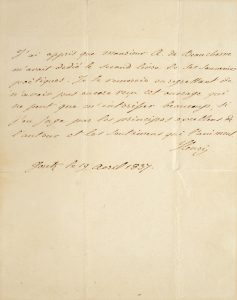 J'ai appris que monsieur A. de Beauchesne
m'avait dédié le second livre de ses souvenirs
poétiques. Je le remercie en regrettant de
n'avoir pas encore reçu cet ouvrage qui
ne peut que m'intéresser beaucoup, si
j'en juge par les principes de
l'auteur et les sentimens qui l'animent
le 19 avril 1837.